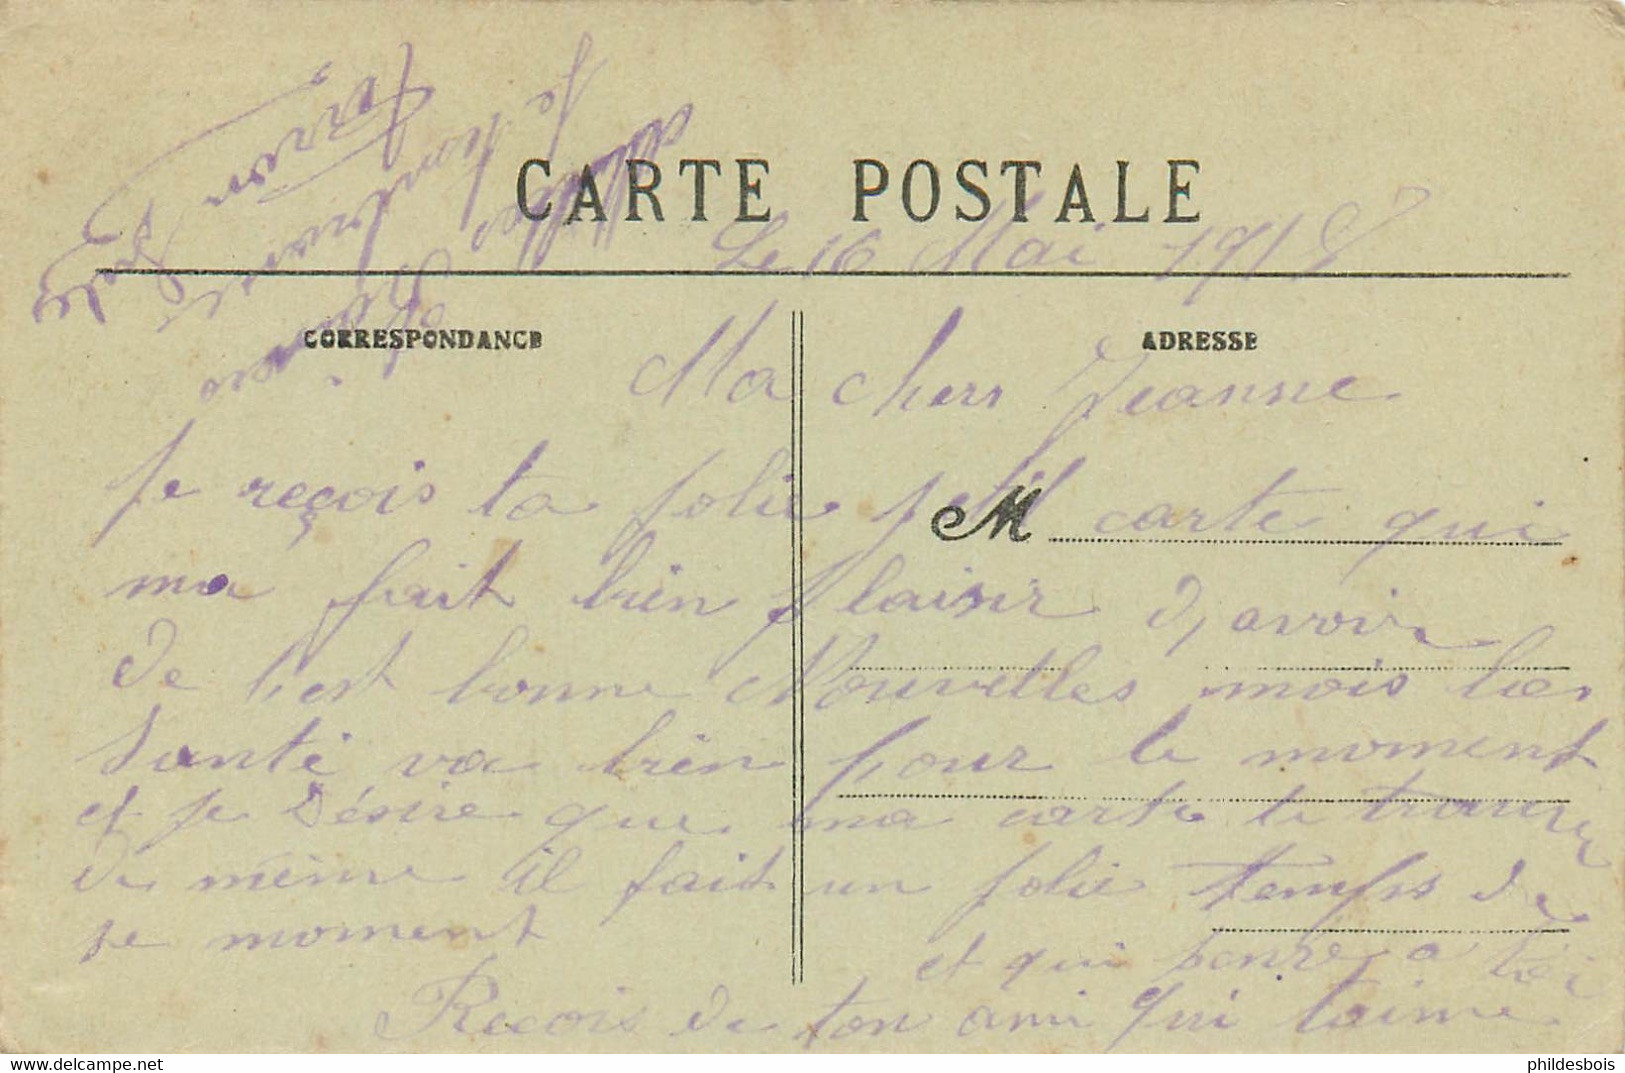 CARTE POSTALE
Le 16 Mai 1915
CORRESPONDANCE
ADRESSE
Ma cher Jeanne
Je reçois ta jolie petit carte qui
M
ma fait bien plaisir d, avoir
de t'est bonne Nouvelles mois la
Santé va bien pour le moment
et je désire que ma carte te trouve
de même il fait un jolie temps de
se moment
et qui pense a toi
Recois de ton ami qui taime
phildesbois